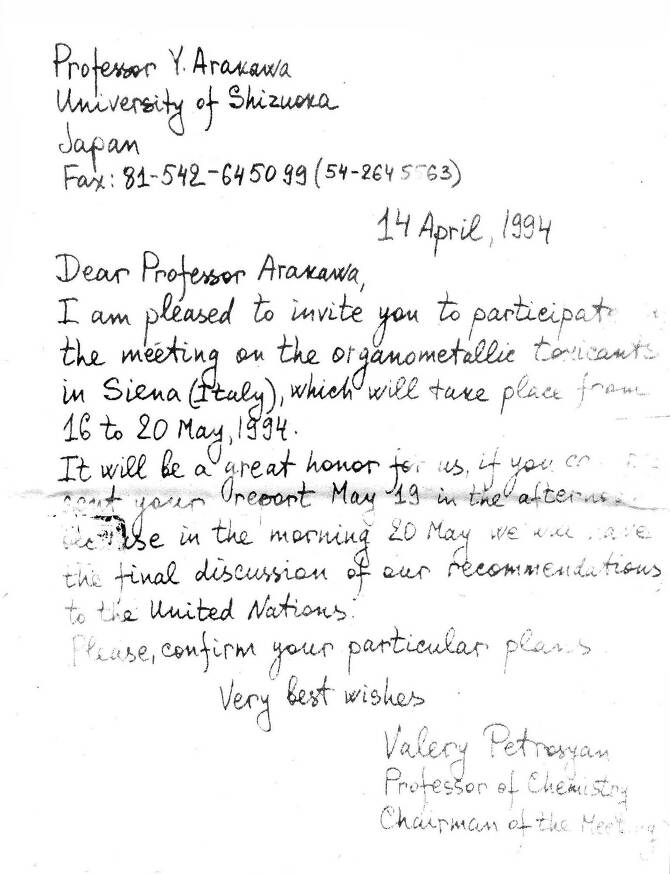 Professor Y. Arakawa
University of Shizuoka
Japan
Fax: 81-542-645099 (54-264 5563)
14 April, 1994
Dear Professor Arakawa,
I am pleased to invite you to participate
the meeting on the organometallic toxicants
in Siena (Italy), which will take place from
16 to 20 May, 1994.
It will be a great honor for us, if you
sent your report May 19 in the afternoon
because in the morning 20 May we will have
the final discussion of our recommendations
to the United Nations.
Please, confirm your particular plans
Very best wishes
Valery Petrosyan
Professor of Chemistry
Chairman of the Meeting